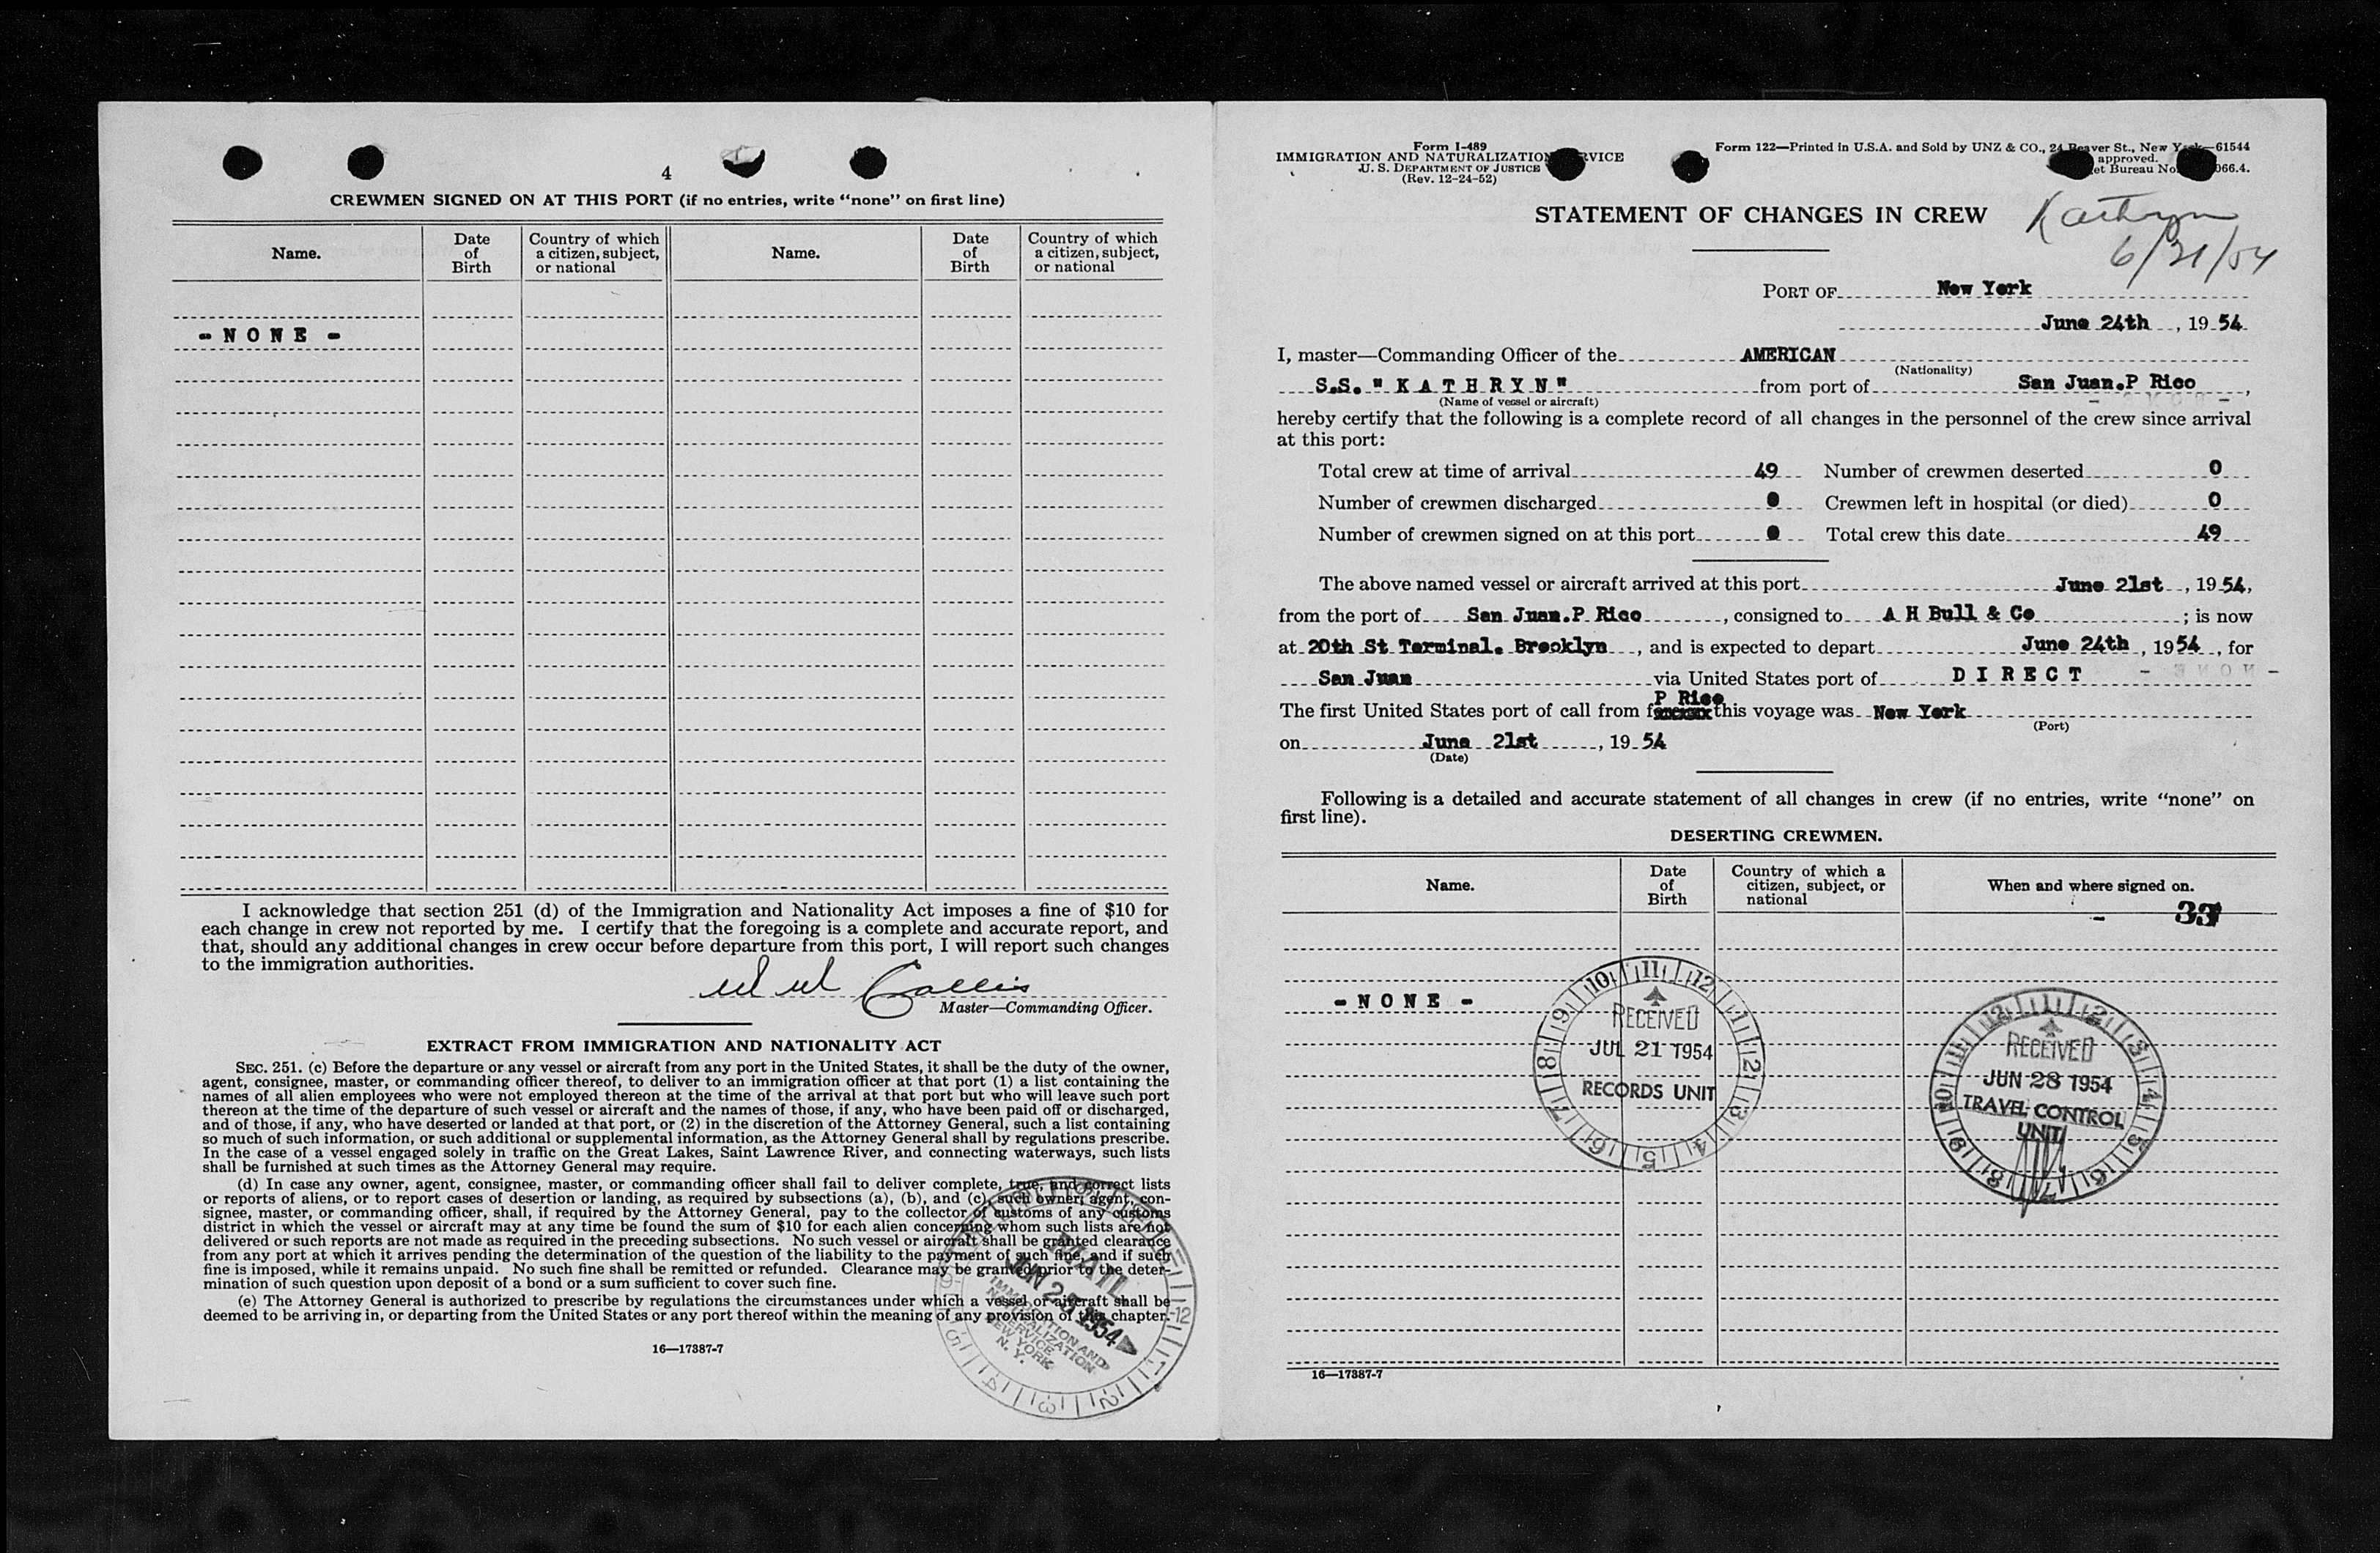 4
CREWMEN SIGNED ON AT THIS PORT (if no entries, write "none" on first line)
Name. Date of Birth Country of which a citizen, subject, or national Name. Date of Birth Country of which a citizen, subject, or national
- N O N E -
I acknowledge that section 251 (d) of the Immigration and Nationality Act imposes a fine of $10 for
each change in crew not reported by me. I certify that the foregoing is a complete and accurate report, and
that, should any additional changes in crew occur before departure from this port, I will report such changes
to the immigration authorities.
Master—Commanding Officer.
EXTRACT FROM IMMIGRATION AND NATIONALITY ACT
SEC. 251. (c) Before the departure or any vessel or aircraft from any port in the United States, it shall be the duty of the owner,
agent, consignee, master, or commanding officer thereof, to deliver to an immigration officer at that port (1) a list containing the
names of all alien employees who were not employed thereon at the time of the arrival at that port but who will leave such port
thereon at the time of the departure of such vessel or aircraft and the names of those, if any, who have been paid off or discharged,
and of those, if any, who have deserted or landed at that port, or (2) in the discretion of the Attorney General, such a list containing
so much of such information, or such additional or supplemental information, as the Attorney General shall by regulations prescribe.
In the case of a vessel engaged solely in traffic on the Great Lakes, Saint Lawrence River, and connecting waterways, such lists
shall be furnished at such times as the Attorney General may require.
(d) In case any owner, agent, consignee, master, or commanding officer shall fail to deliver complete, true, and correct lists
or reports of aliens, or to report cases of desertion or landing, as required by subsections (a), (b), and (c), such owner, agent, con-
signee, master, or commanding officer, shall, if required by the Attorney General, pay to the collector of customs of any customs
district in which the vessel or aircraft may at any time be found the sum of $10 for each alien concerning whom such lists are not
delivered or such reports are not made as required in the preceding subsections. No such vessel or aircraft shall be granted clearance
from any port at which it arrives pending the determination of the question of the liability to the payment of such fine, and if such
fine is imposed, while it remains unpaid. No such fine shall be remitted or refunded. Clearance may be granted prior to the deter-
mination of such question upon deposit of a bond or a sum sufficient to cover such fine.
(e) The Attorney General is authorized to prescribe by regulations the circumstances under which a vessel or aircraft shall be
deemed to be arriving in, or departing from the United States or any port thereof within the meaning of any provision of this chapter.
MAIL
JUN 25 1954
IMMIGRATION AND
NATURALIZATION
SERVICE
NEW YORK
N. Y.
16—17387-7
Form I-489
IMMIGRATION AND NATURALIZATION SERVICE
U. S. DEPARTMENT OF JUSTICE
(Rev. 12-24-52)
Form 122—Printed in U.S.A. and Sold by UNZ & CO., 24 Beaver St., New York—61544
approved.
Bureau No. 066.4.
STATEMENT OF CHANGES IN CREW
Kathryn
6/21/54
PORT OF New York
June 24th, 19 54
I, master—Commanding Officer of the AMERICAN
(Nationality)
S.S. " K A T H R Y N " from port of San Juan.P Rico,
(Name of vessel or aircraft)
hereby certify that the following is a complete record of all changes in the personnel of the crew since arrival
at this port:
Total crew at time of arrival 49 Number of crewmen deserted 0
Number of crewmen discharged 0 Crewmen left in hospital (or died) 0
Number of crewmen signed on at this port 0 Total crew this date 49
The above named vessel or aircraft arrived at this port June 21st, 19 54,
from the port of San Juan.P Rico, consigned to A H Bull & Co; is now
at 20th St Terminal. Brooklyn, and is expected to depart June 24th, 19 54, for
San Juan via United States port of D I R E C T
P Rico
The first United States port of call from this voyage was New York
(Port)
on June 21st, 19 54
(Date)
Following is a detailed and accurate statement of all changes in crew (if no entries, write "none" on
first line).
DESERTING CREWMEN.
Name. Date of Birth Country of which a citizen, subject, or national When and where signed on.
- 33
- N O N E -
RECEIVED
JUL 21 1954
RECORDS UNIT
RECEIVED
JUN 28 1954
TRAVEL CONTROL
UNIT
16—17387-7